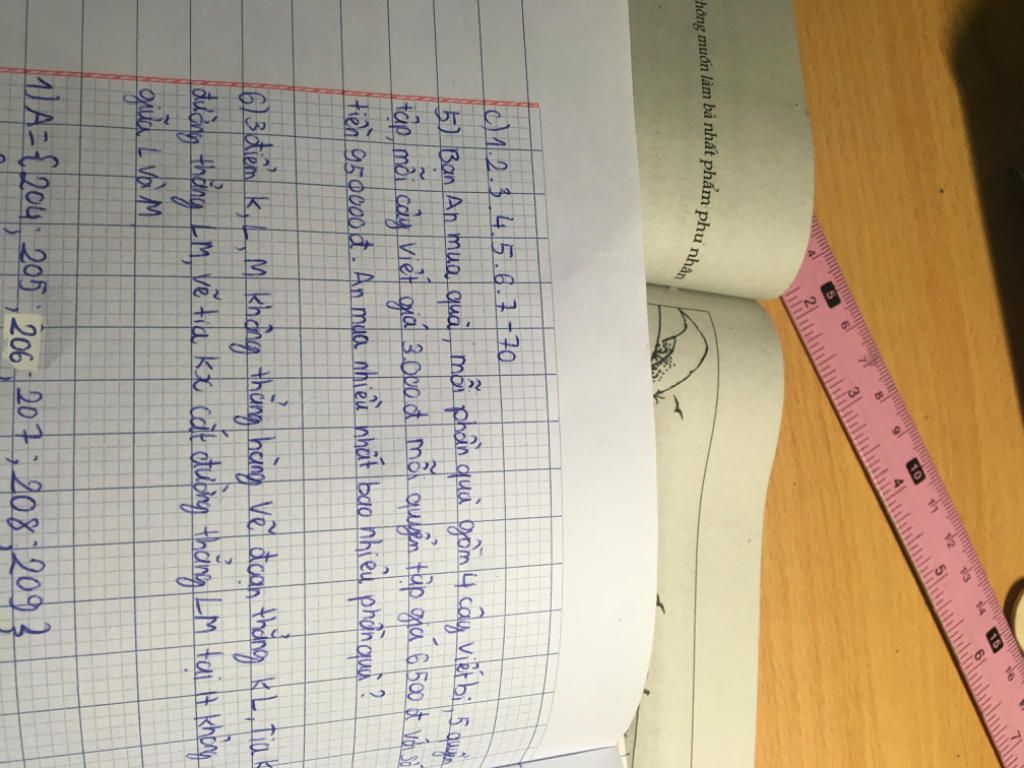 không muốn làm bà nhất phẩm phu nhân
c) 1.2.3.4.5.6.7-70
5) Bạn An mua quà, mỗi phần quà gồm 4 cây viết bi, 5 quyển
tập, mỗi cây viết giá 3000đ mỗi quyển tập giá 6500đ và số
tiền 95000đ. An mua nhiều nhất bao nhiêu phần quà?
6) 3 điểm K, L, M không thẳng hàng vẽ đoạn thẳng KL, tia K
đường thẳng LM, vẽ tia Kx cắt đường thẳng LM tại H không
giữa L và M
1) A={204; 205; 206; 207; 208; 209}
4
5
6
7
8
9
10
11
12
13
14
15
16
2
3
4
5
6
7